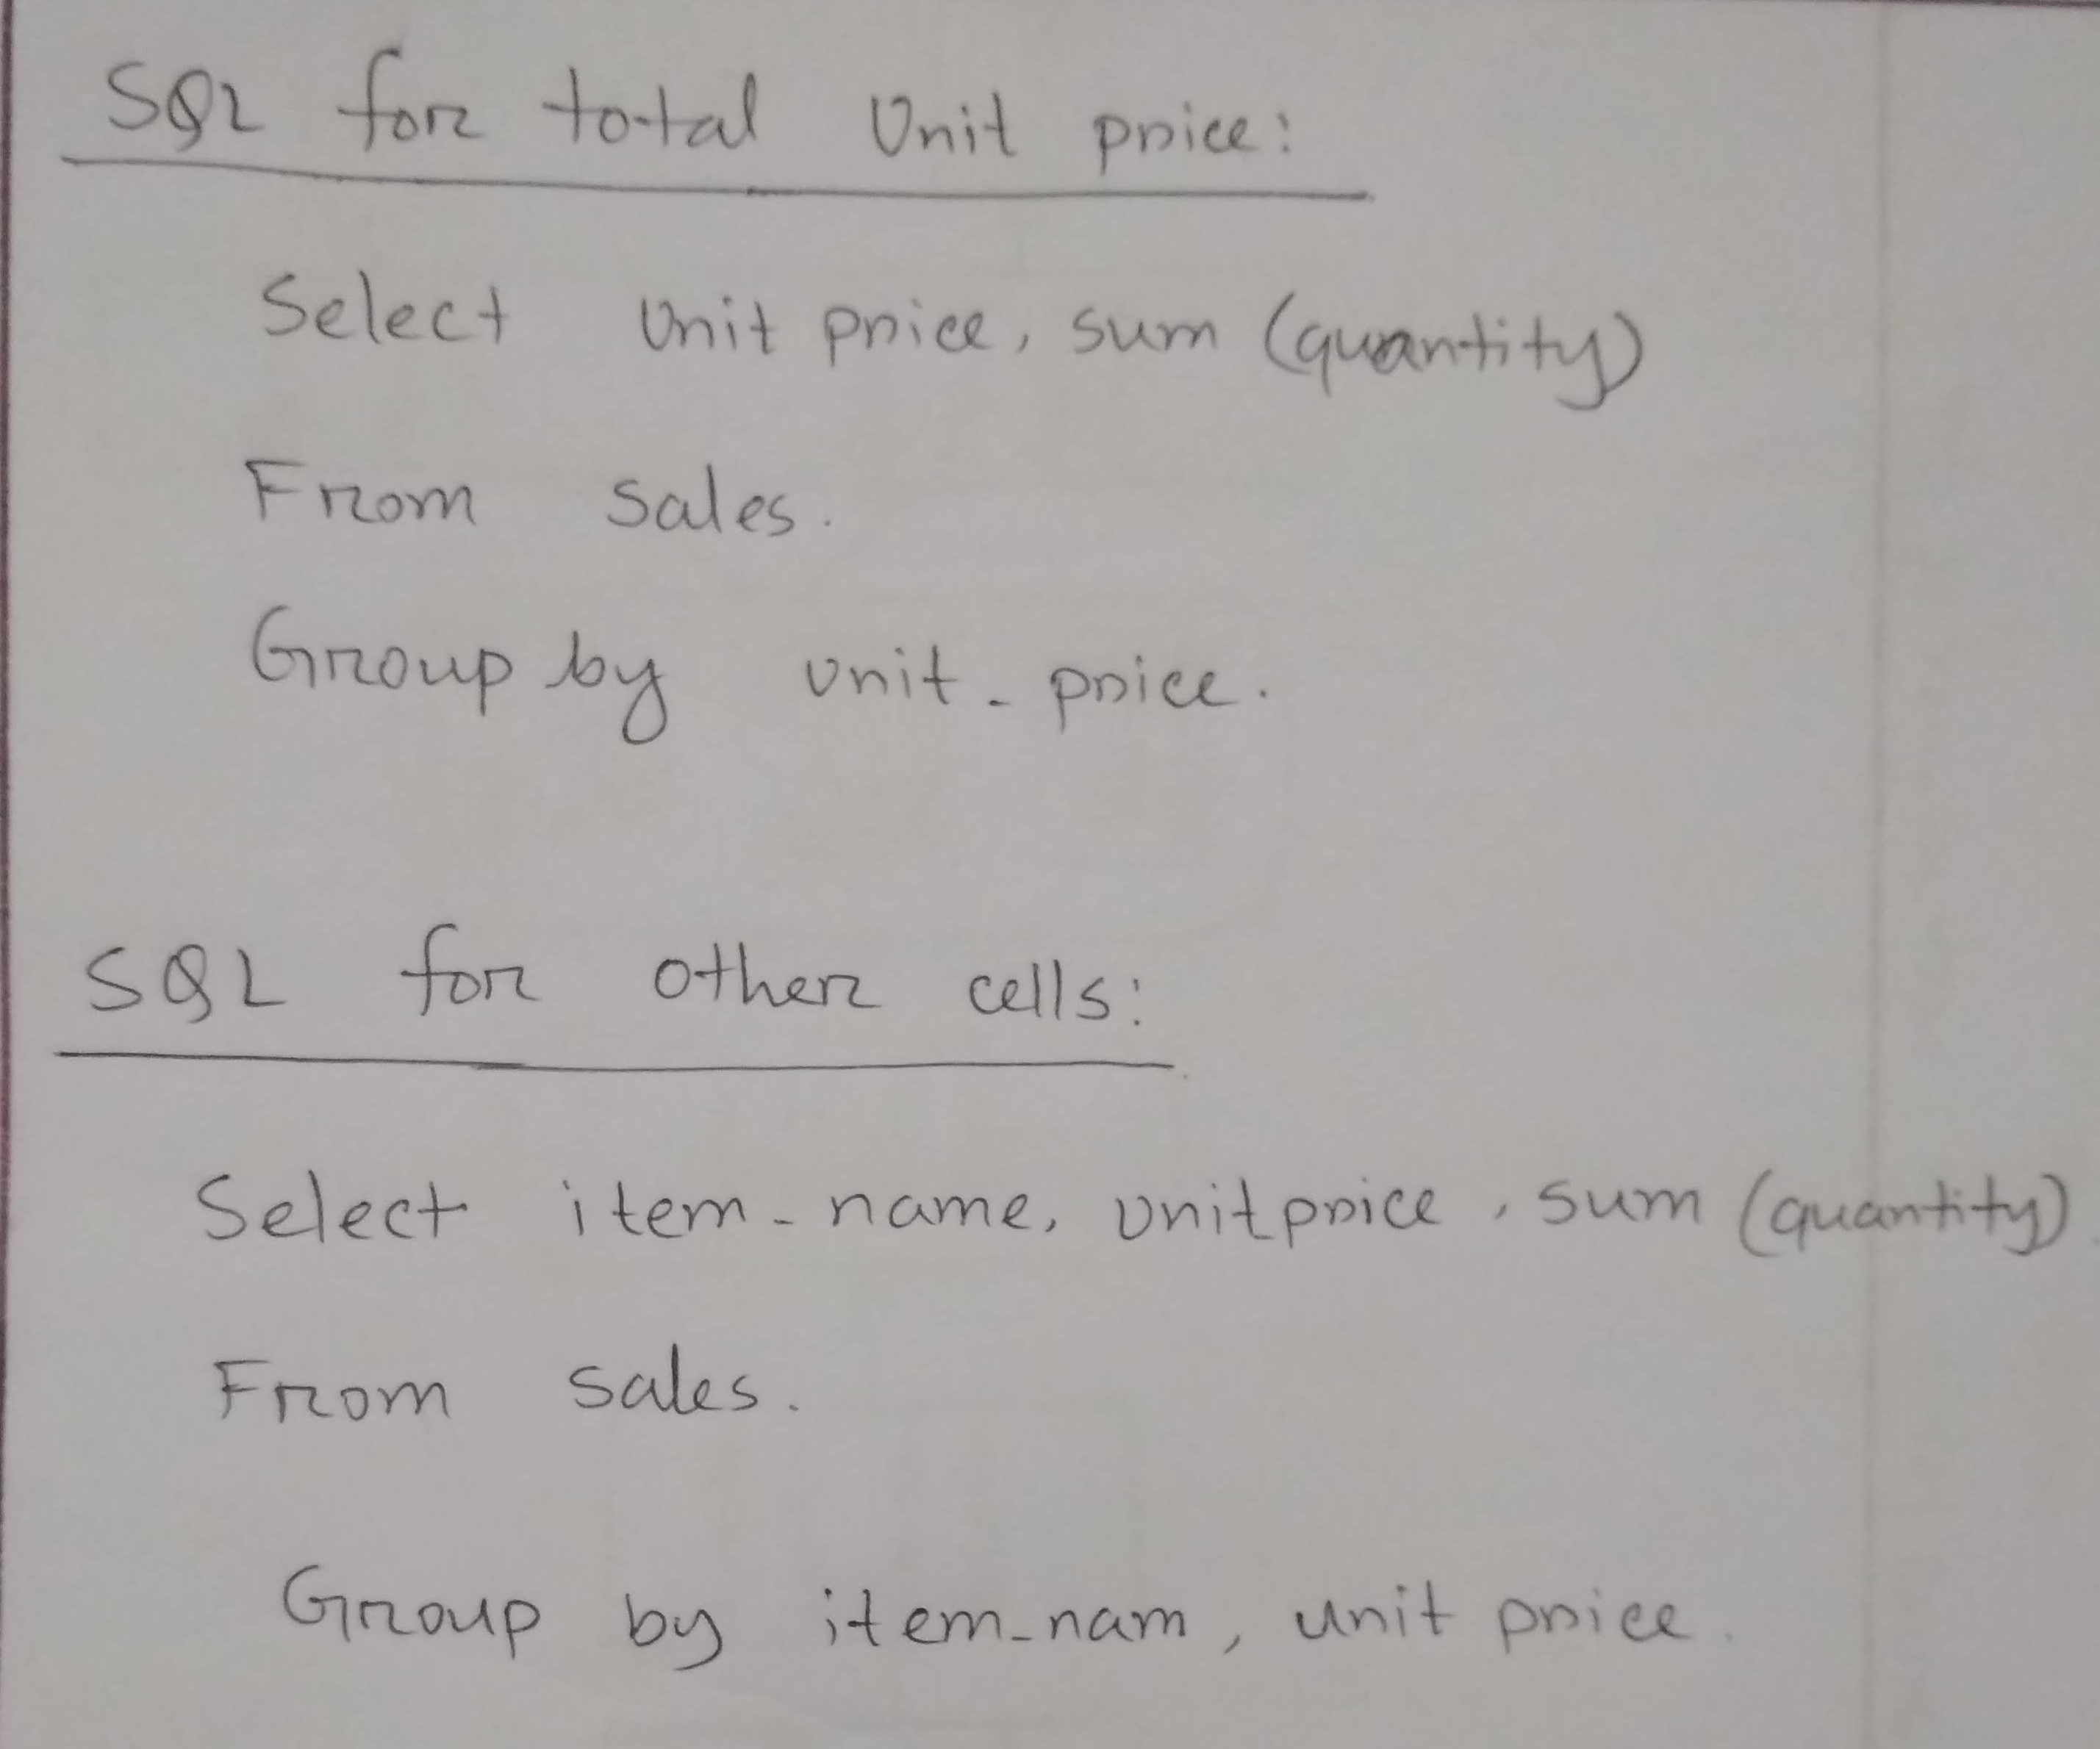 SQL for total Unit price:
Select Unit price, sum (quantity)
From sales.
Group by unit_price.
SQL for other cells:
Select item-name, unit price, sum (quantity)
From sales.
Group by item_nam, unit price.